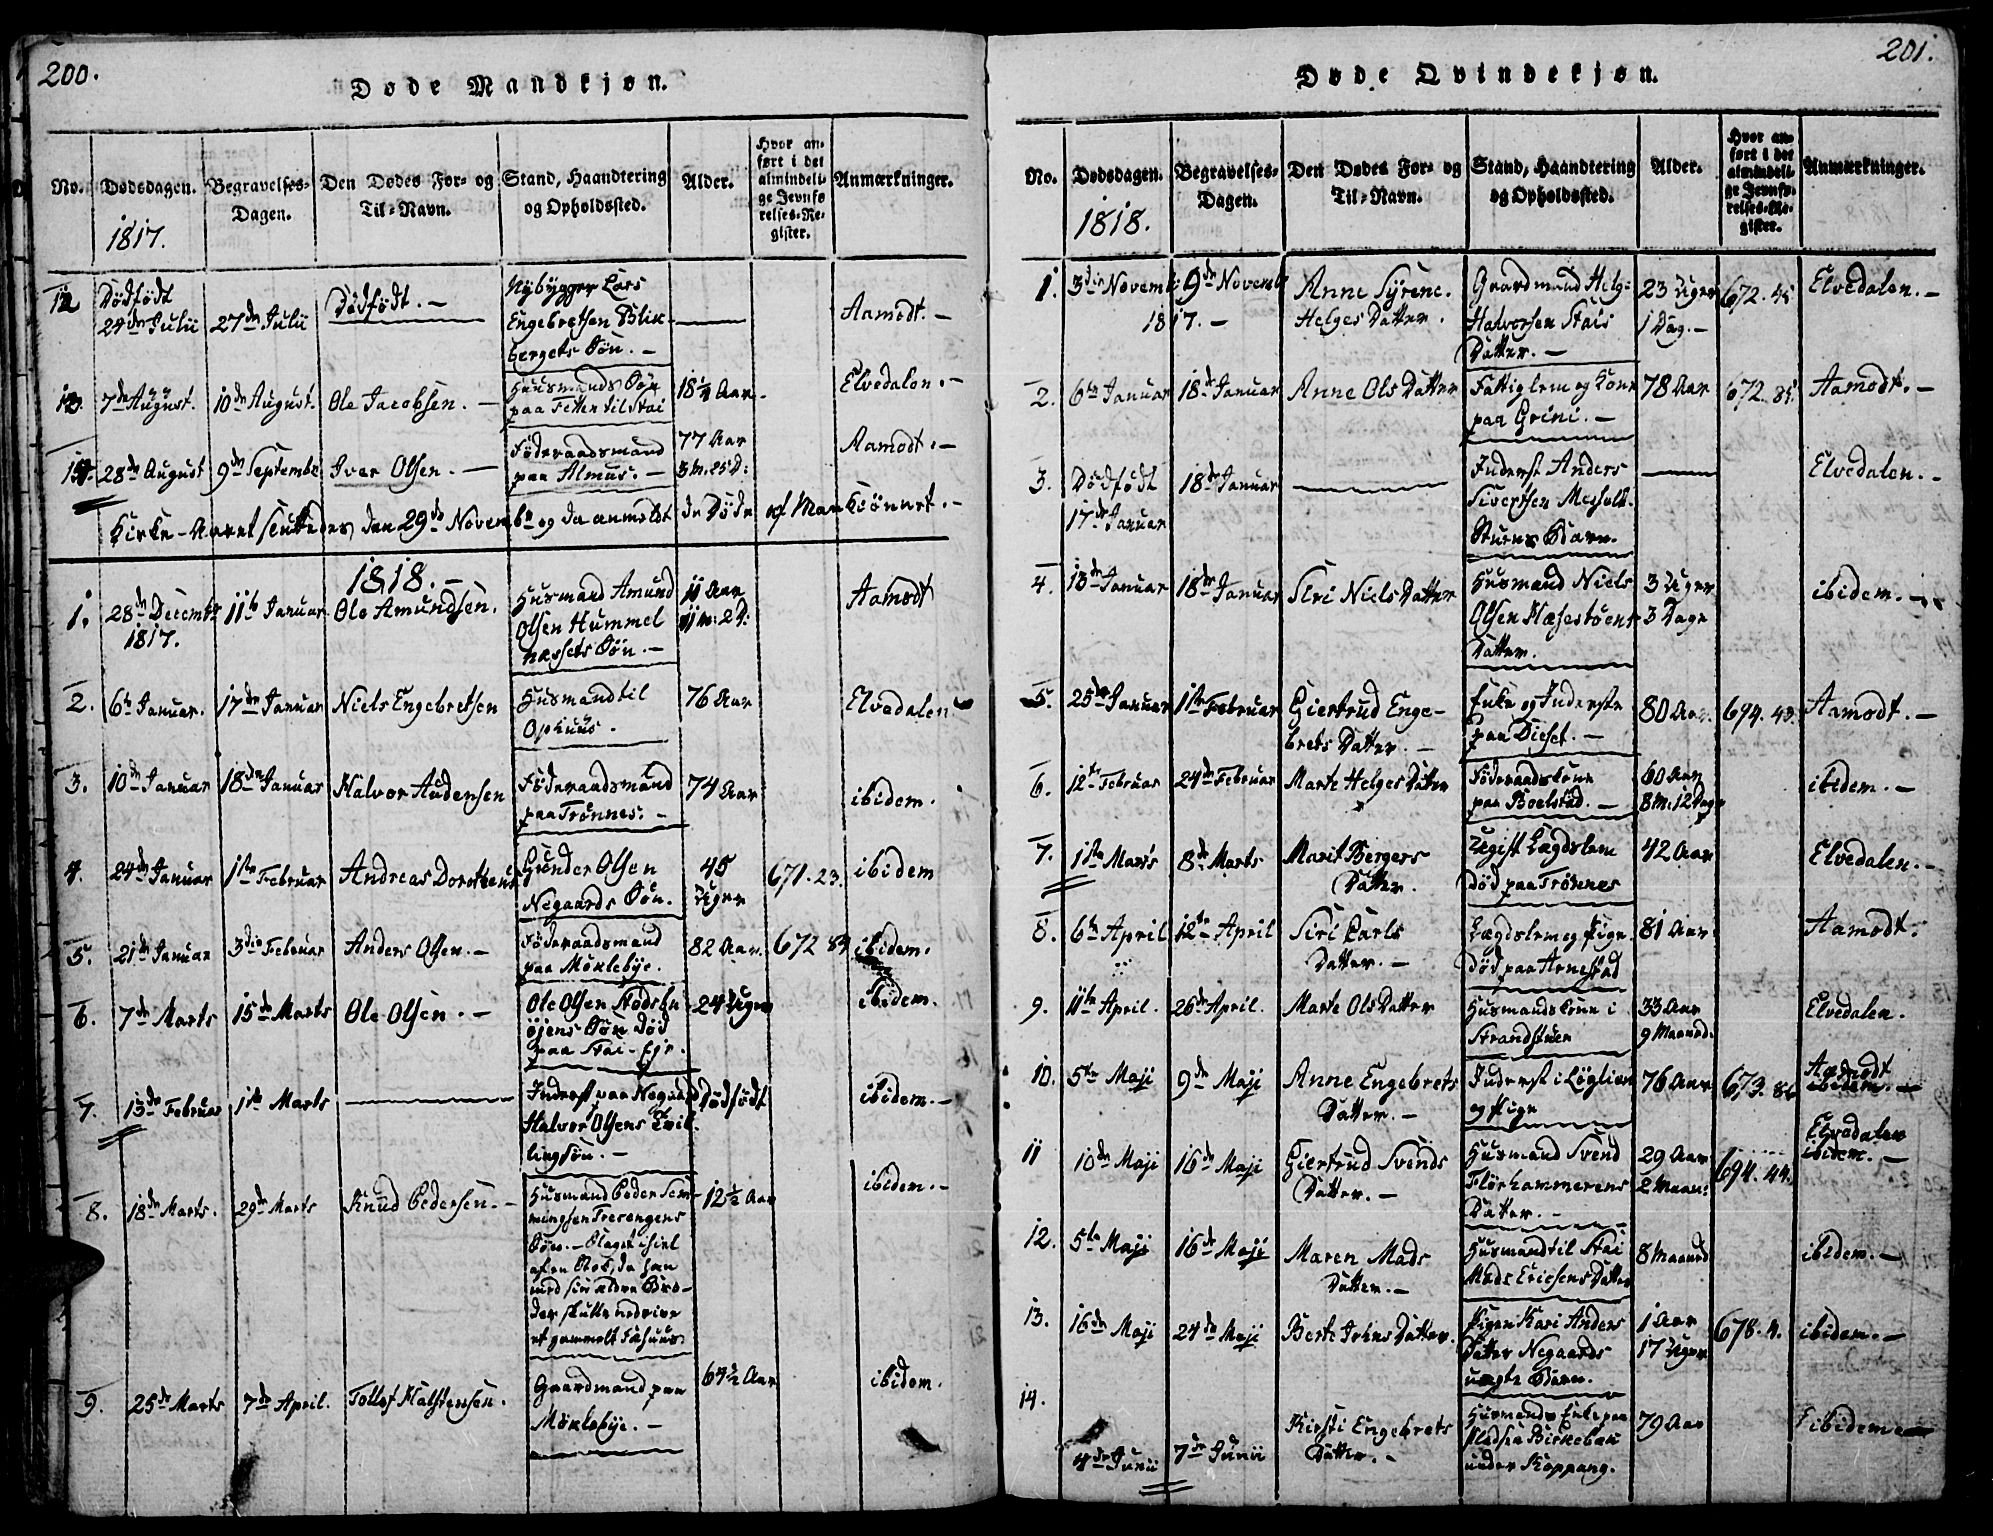 200.
Døde Mandkjøn.
No. Dødsdagen. Begravelses-Dagen. Den Dødes For- og Til-Navn. Stand, Haandtering og Opholdssted. Alder. Hvor anført i det almindelige Jevnførelses-Register. Anmærkninger.
1817.
12 Dødfødt 24de Julii 27de Julii Dødfødt. — Nybygger Lars Engebretsen Blikbergets Søn. — — Aamodt. —
13. 7de August. 10de August. Ole Jacobsen. — Huusmands Søn paa Fetten til Stai 18½ Aar. Elvedalen. —
14. 28de August 9de Septembr Iver Olsen. — Föderaadsmand paa Almus. — 77 Aar 3 M. 25 D: Aamodt. —
Kirke-Aaret sluttedes den 29de Novembr og da anmeldt 14 Døde af Mandkiønnet. —
1818. —
1. 28de Decembr 1817. 11te Januar Ole Amundsen. Husmand Amund Olsen Hummelnæssets Søn. — 11 Aar 11 M: 2 D: Aamodt
2. 6te Januar. 17de Januar Niels Engebretsen Husmand til Ophuus. 76 Aar Elvedalen
3. 10de Januar 18de Januar Halvor Audensen Föderaadsmand paa Trønnes. — 74 Aar ibidem.
4. 24de Januar 1ste Februar Andreas Dorotheus Gunder Olsen Negaards Søn. 45 Uger 671. 23. ibidem
5. 21de Januar 3die Februar Anders Olsen. — Föderaadsmand paa Möklebye. 82 Aar. 672 84 ibidem.
6. 7de Marts 15de Marts Ole Olsen. — Ole Olsen Stødsbuöjens Søn død paa Stai-Eje. 24 Uger ibidem.
7. 13de Februar 1ste Marts — Inderst paa Negaard Halvor Olsens Tvillingsøn. — Dødfødt ibidem. —
8. 18de Marts. 29de Marts Knud Pedersen. — Husmand Peder Semmingsen Tresengens Søn. — Slaget ihiel af en Stok, da han med sin ældre Broder skulle nedrive et gammelt Fæhuus. 12½ Aar ibidem. —
9. 25de Marts 7de April. Tollef Halstensen. Gaardmand paa Möklebye. — 64½ Aar ibidem.
201.
Døde Qvindekjøn.
No. Dødsdagen. Begravelses-Dagen. Den Dødes For- og Til-Navn. Stand, Haandtering og Opholdssted. Alder. Hvor anført i det almindelige Jevnførelses-Register. Anmærkninger.
1818.
1. 3die Novemb: 1817. — 9de Novemb Anne Syrene. Helges Datter. Gaardmand Helge Halvorsen Stais Datter. — 23 Uger 1 Dag. — 672. 45 Elvedalen. —
2. 6te Januar 18de Januar Anne Ols Datter Fattiglem og Kone paa Grini. — 78 Aar 672. 85. Aamodt. —
3. Dødfødt 17de Januar 18de Januar — Inderst Anders Sivertsen Stuens Barn. — Elvedalen. —
4. 13de Januar 18de Januar Siri Niels Datter Husmand Niels Olsen Næsestöens Datter. 3 Uger 3 Dage ibidem. —
5. 25de Januar 1ste Februar Giertrud Engebrets Datter. — Enke og Inderste paa Dieset. — 80 Aar. 694. 43. Aamodt. —
6. 12te Februar 24de Februar Marte Helges Datter Föderaadskone paa Boelstad. — 60 Aar 8 M. 12 Dage ibidem. —
7. 1ste Marts 8de Marts Marit Bergers Datter. Ugift Lægdslem död paa Trönnes 42 Aar Elvedalen. —
8. 6te April 12te April Siri Carls Datter. — Lægdslem og Pige. död paa Arnestad 81 Aar Aamodt.
9. 11te April. 26de April. Marte Ols Datter Husmandskone i Strandstuen 33 Aar 9 Maaned. Elvedalen.
10. 5te Maji 9de Maji Anne Engebrets Datter. — Inderst i Löglien og Pige 76 Aar 673. 86 Aamodt ibidem. —
11 10de Maji 16de Maji Giertrud Svends Datter. — Husmand Svend Flörhammerens Datter. — 29 Aar 2 Maan: 694. 44. Elvedalen ibidem. —
12. 5te Maji 16de Maji Maren Mads Datter. — Husmand til Stai Mads Ericsens Datter 8 Maaned ibidem. —
13. 16de Maji 24de Maji Berte Johns Datter. Pigen Kari Anders Datter Negaards uægte Barn. 1 Aar 17 Uger 678. 4. ibidem. —
14. 4de Junii 7de Junii Kirsti Engebrets Datter. — Husmands Enke paa Pladsen Birkebak under Koppang. 79 Aar ibidem